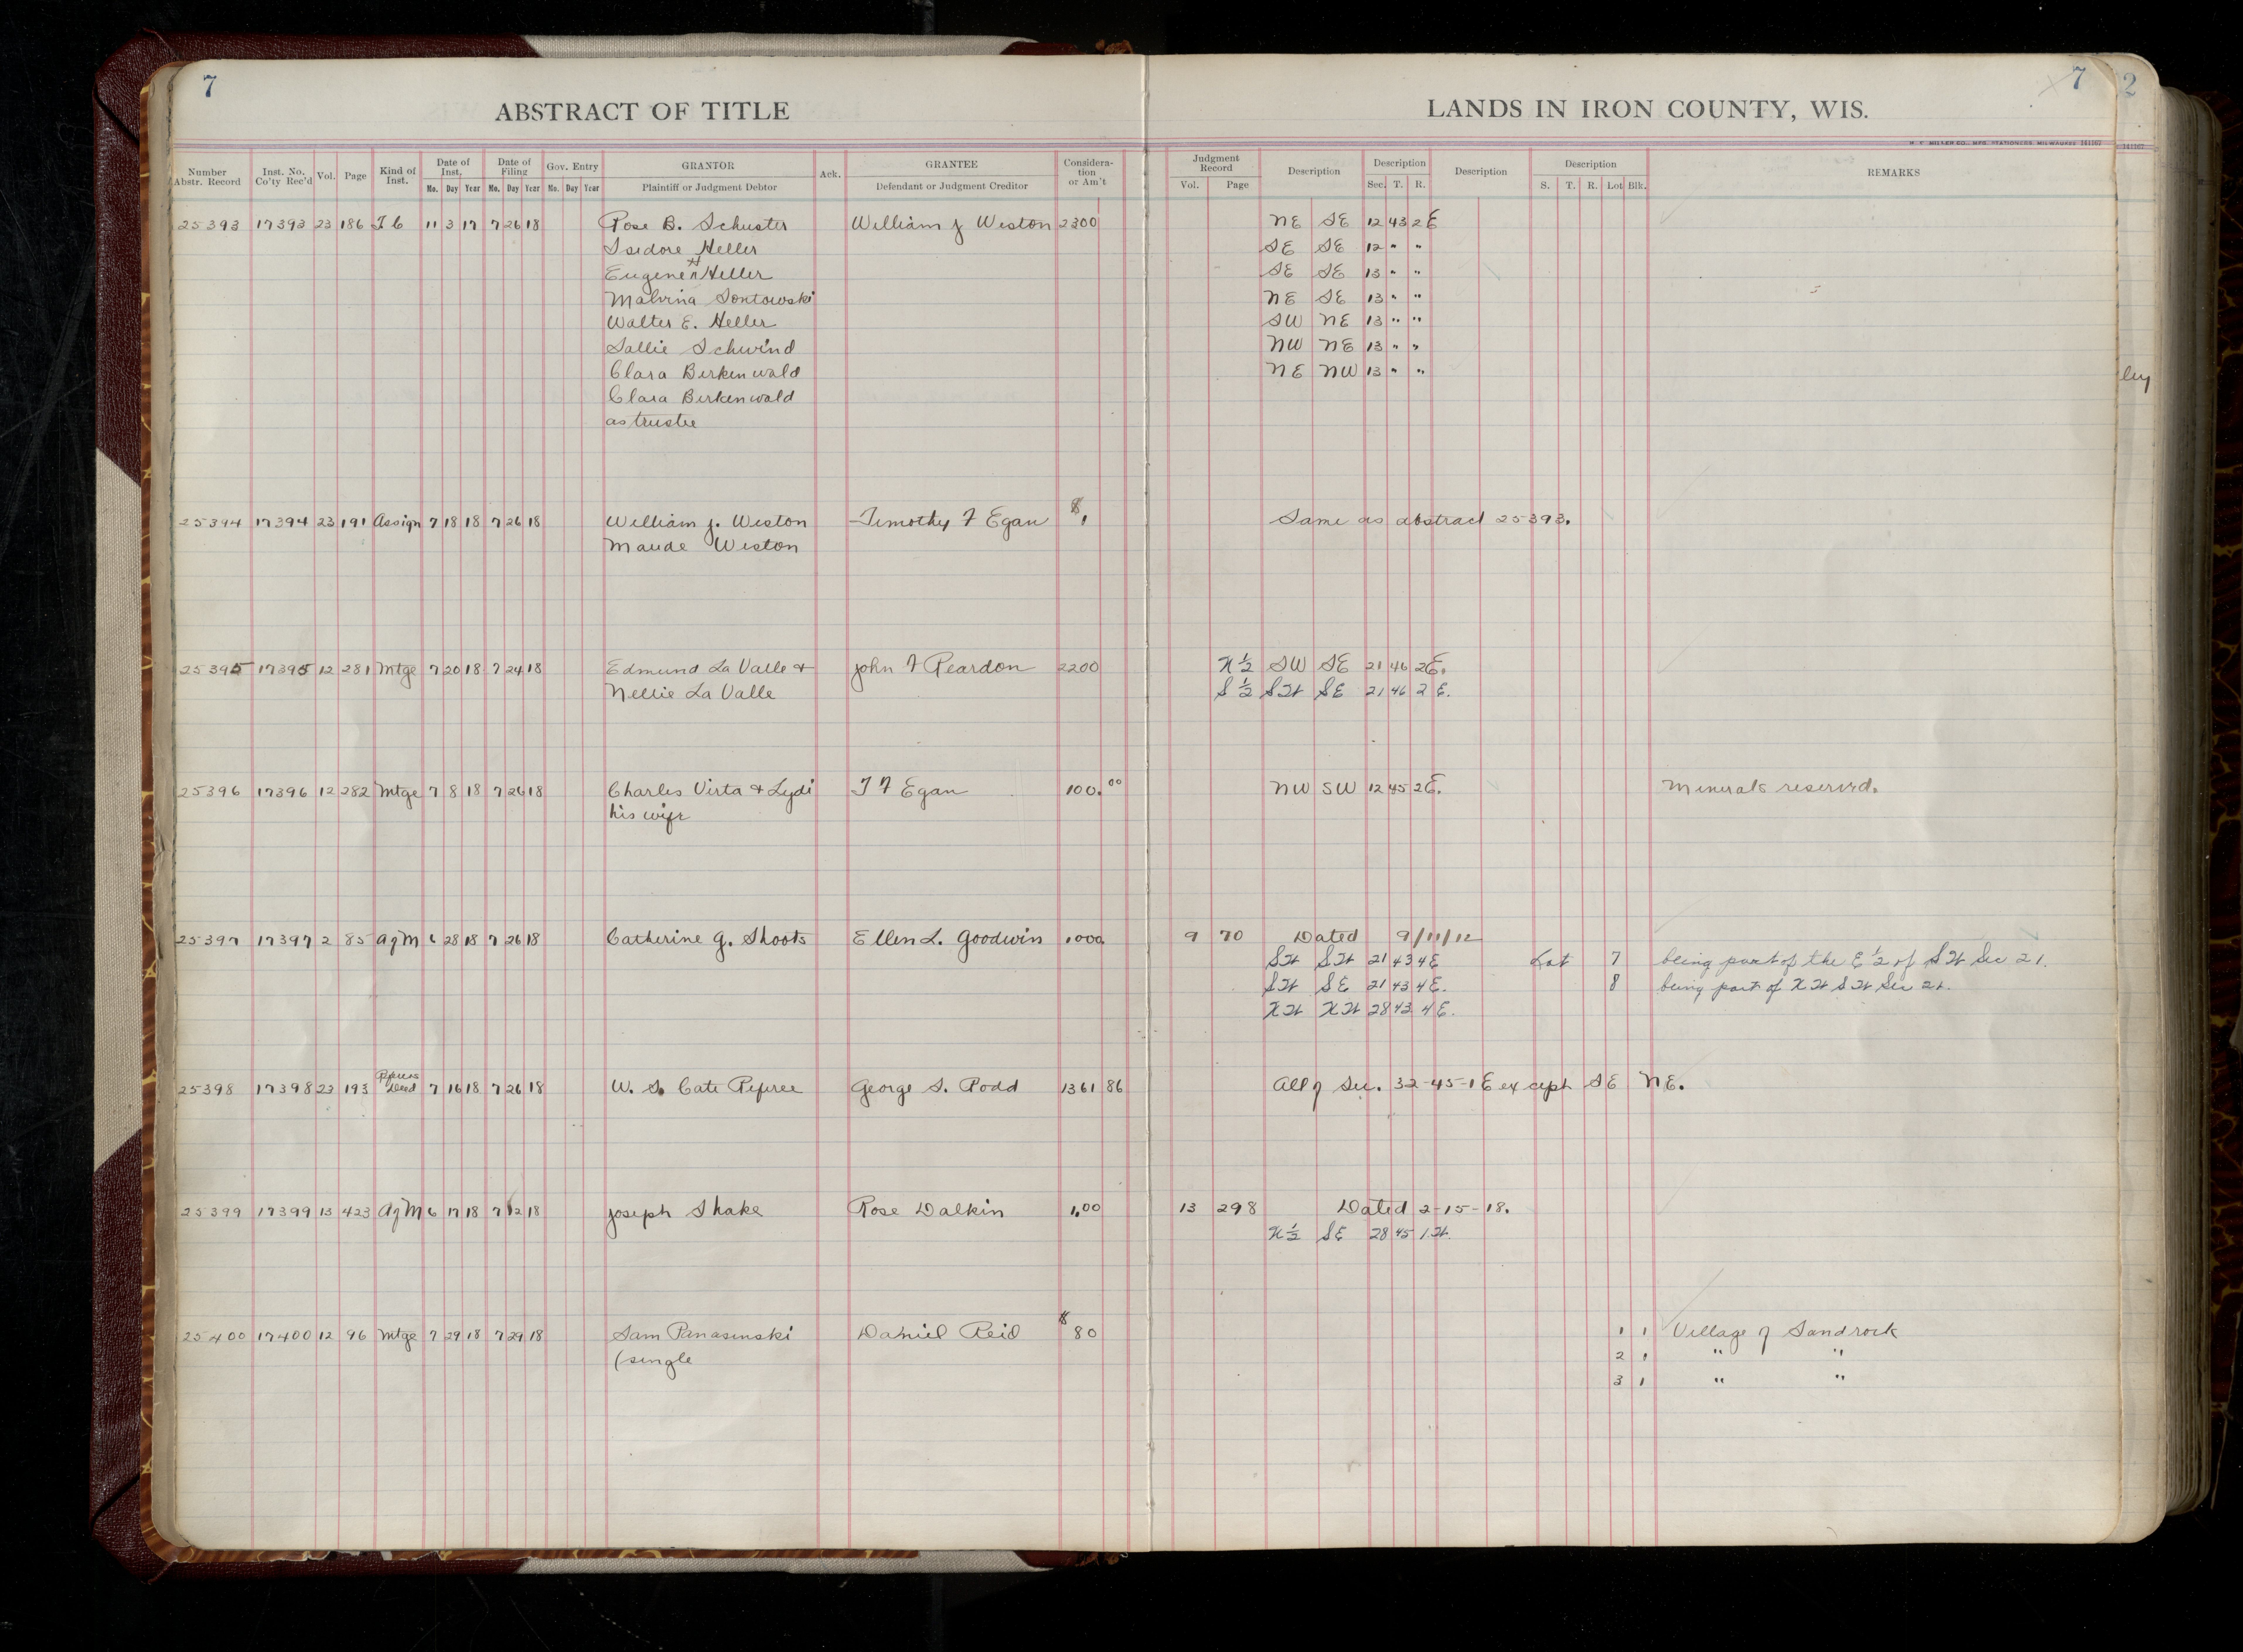 7
ABSTRACT OF TITLE
LANDS IN IRON COUNTY, WIS.
7
2
H. C. MILLER CO., MFG. STATIONERS, MILWAUKEE 141167
141167
Number Abstr. Record | Inst. No. Co'ty Rec'd | Vol. | Page | Kind of Inst. | Date of Inst. Mo. Day Year | Date of Filing Mo. Day Year | Gov. Entry Mo. Day Year | GRANTOR Plaintiff or Judgment Debtor | Ack. | GRANTEE Defendant or Judgment Creditor | Considera-tion or Am't | Judgment Record Vol. Page | Description | Description Sec. T. R. | Description | Description S. T. R. Lot Blk. | REMARKS
25393 17393 23 186 L C 11 3 17 7 26 18 Rose B. Schuster William J Weston 2300 NE SE 12 43 2E
Isidore Heller SE SE 12 " "
Eugene H Heller SE SE 13 " "
Malvina Sontowski NE SE 13 " "
Walter E. Heller SW NE 13 " "
Sallie Schwind NW NE 13 " "
Clara Birkenwald NE NW 13 " "
ley
Clara Birkenwald
as trustee
25394 17394 23 191 Assign 7 18 18 7 26 18 William J. Weston Timothy F Egan $1 Same as abstract 25393.
Maude Weston
25395 17395 12 281 Mtge 7 20 18 7 24 18 Edmund La Valle + John F Reardon 2200 N ½ SW SE 21 46 2E.
Nellie La Valle S ½ SW SE 21 46 2 E.
25396 17396 12 282 Mtge 7 8 18 7 26 18 Charles Virta + Lydi T F Egan 100.00 NW SW 12 45 2E. Minerals reserved.
his wife
25397 17397 2 85 AgM 6 28 18 7 26 18 Catherine G. Shoots Ellen L. Goodwin 1000. 9 70 Dated 9/11/12
SW SW 21 43 4E Lot 7 being part of the E ½ of SW Sec 21.
SW SE 21 43 4E. 8 being part of NW SW Sec 21.
NW NW 28 43 4E.
25398 17398 23 193 Referees Deed 7 16 18 7 26 18 W. S. Cate Referee George S. Rodd 1361 86 All of Sec. 32-45-1E except SE NE.
25399 17399 13 423 AgM 6 17 18 7 12 18 Joseph Shake Rose Dalkin 1.00 13 298 Dated 2-15-18.
N ½ SE 28 45 1.W.
25400 17400 12 96 Mtge 7 29 18 7 29 18 Sam Panasinski Daniel Reid $80 1 1 Village of Sandrock
(single 2 1 " "
3 1 " "